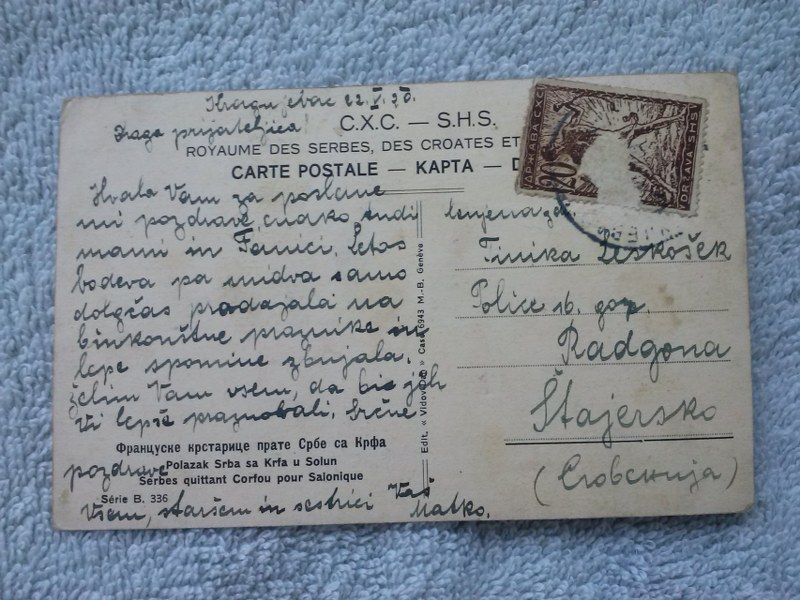 Kragujevac 22.V.20.
Draga prijateljica!
C.X.C. — S.H.S.
ROYAUME DES SERBES, DES CROATES ET
CARTE POSTALE — КАРТА — D
ДРЖАВА СХС
20
DRŽAVA SHS
Hvala Vam za poslane
mi pozdrave, enako tudi
mami in Fanici. Letos
bodeva pa midva samo
dolgčas prodajala na
binkoštne praznike in
lepe spomine zbujala.
Želim Vam vsem, da bi jih
Vi lepše praznovali. Srčne
pozdrave
Vsem, staršem in sestrici Vaš
Matko.
Француске крстарице прате Србе са Крфа
Polazak Srba sa Krfa u Solun
Serbes quittant Corfou pour Salonique
Série B. 336
Edit. « Vidovdan » Case 6943 M.-B. Genève
Cenjena gdč.
Tinika Leskošek
Police 16. gor.
Radgona
Štajersko
(Словенија)